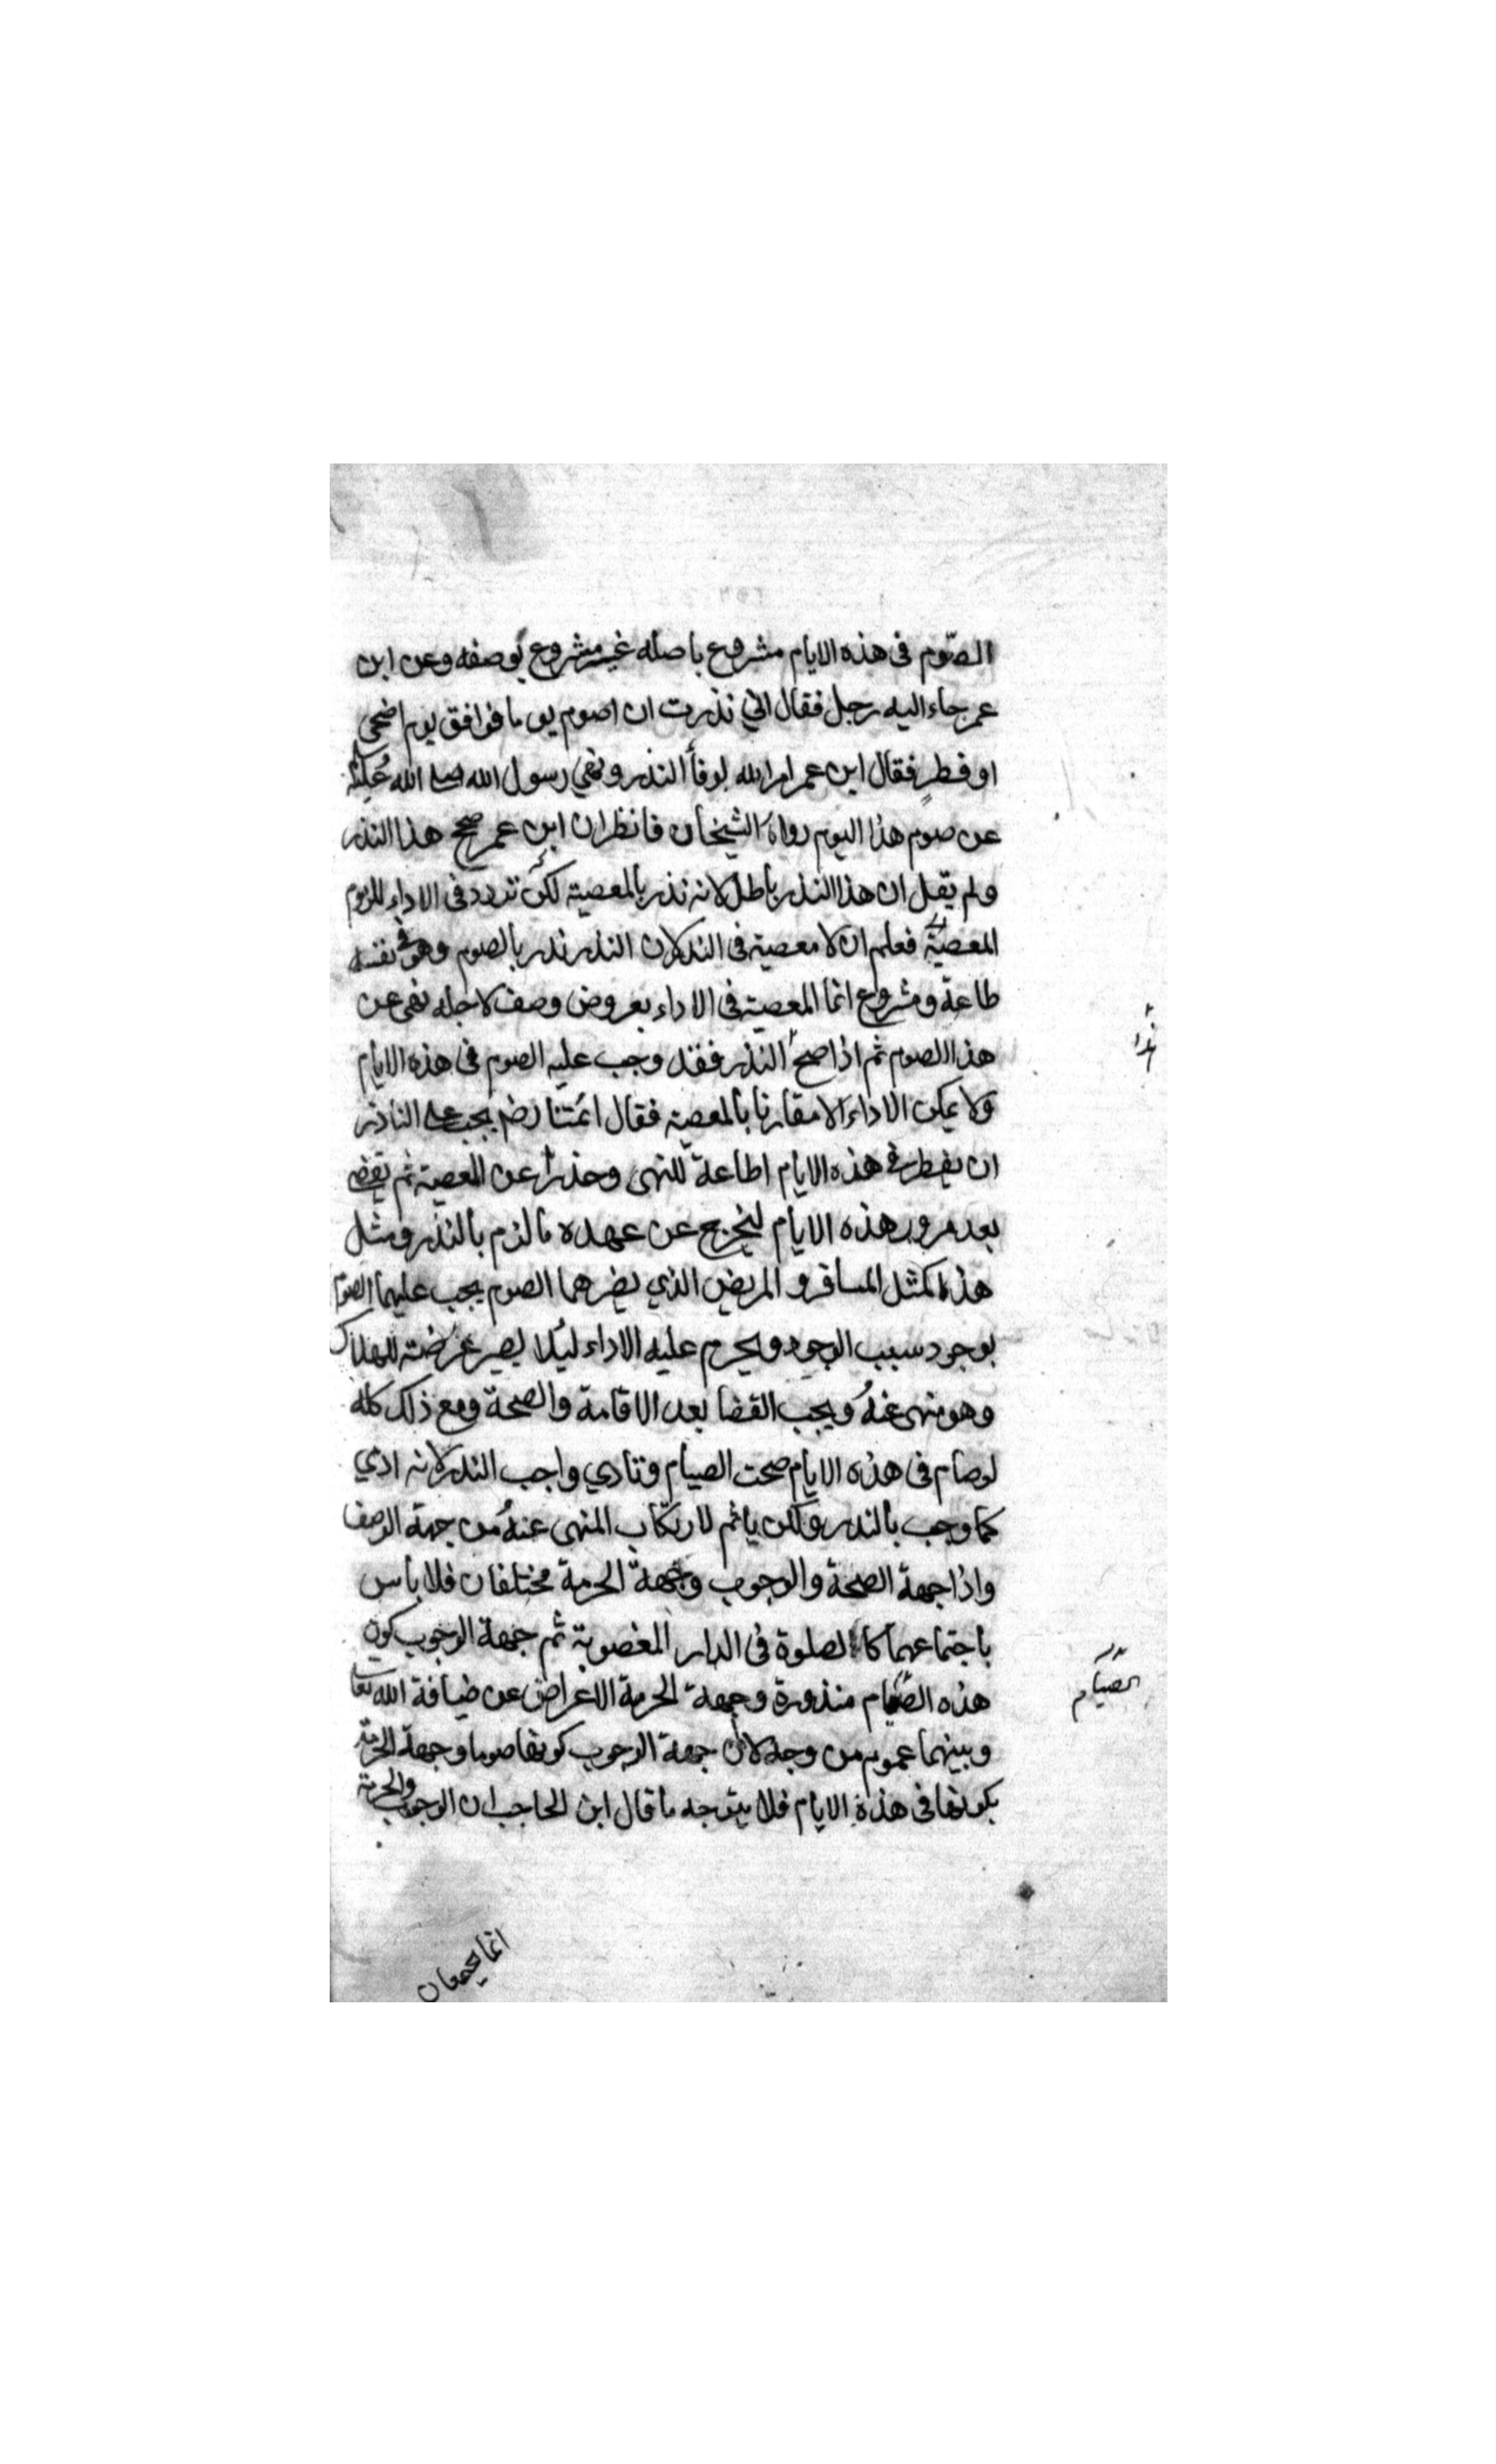 الصّوم فى هذه الايام مشروع باصله غير مشروع بوصفه وعن ابن
عمر جاء اليه رجل فقال اني نذرت ان اصوم يوما فوافق يوم اضحى
او فطر فقال ابن عمر امر الله بوفأ النذر ونهي رسول الله صلى الله عليه
عن صوم هذا اليوم رواه الشيخان فانظر ان ابن عمر صحح هذا النذر
ولم يقل ان هذا النذر باطل لانه نذر بالمعصية لكن تردد فى الاداء للزوم
المعصية فعلم ان لا معصية فى النذر لان النذر نذر بالصوم وهو فى نفسه
طاعة ومشروع انما المعصية فى الاداء بعروض وصف لاجله نهى عن
هذا الصوم ثم اذا صح النذر فقد وجب عليه الصوم فى هذه الايام
ولا يمكن الاداء الا مقارنا بالمعصية فقال ائمتنا رضـ يجب على الناذر
ان يفطر فى هذه الايام اطاعة للنهى وحذرا عن المعصية ثم يقضى
بعد مرور هذه الايام ليخرج عن عهدة ما لزم بالنذر ومثل
هذا كمثل المسافر و المريض الذي يضرهما الصوم يجب عليهما الصوم
بوجود سبب الوجود ويحرم عليه الاداء ليلا يصير عرضته للهلاك
وهو منهى عنه ويجب القضا بعد الاقامة والصحة ومع ذلك كله
لو صام فى هذه الايام صحت الصيام وتادي واجب النذر لانه ادي
كما وجب بالنذر ولكن ياثم لارتكاب المنهى عنه من جهة الوصف
واذا جهة الصحة والوجوب وجهة الحرمة مختلفان فلا باس
باجتماعهما كالصلوة فى الدار المغصوبة ثم جهة الوجوب كون
هذه الصيام منذورة وجهة الحرمة الاعراض عن ضيافة الله تعا
وبينهما عموم من وجه لان جهة الوجوب كونها صوما وجهة الحرمة
بكونها فى هذه الايام فلا يتوجه ما قال ابن الحاجب ان الوجوب والحرمة
الصيام
انما يجمعان